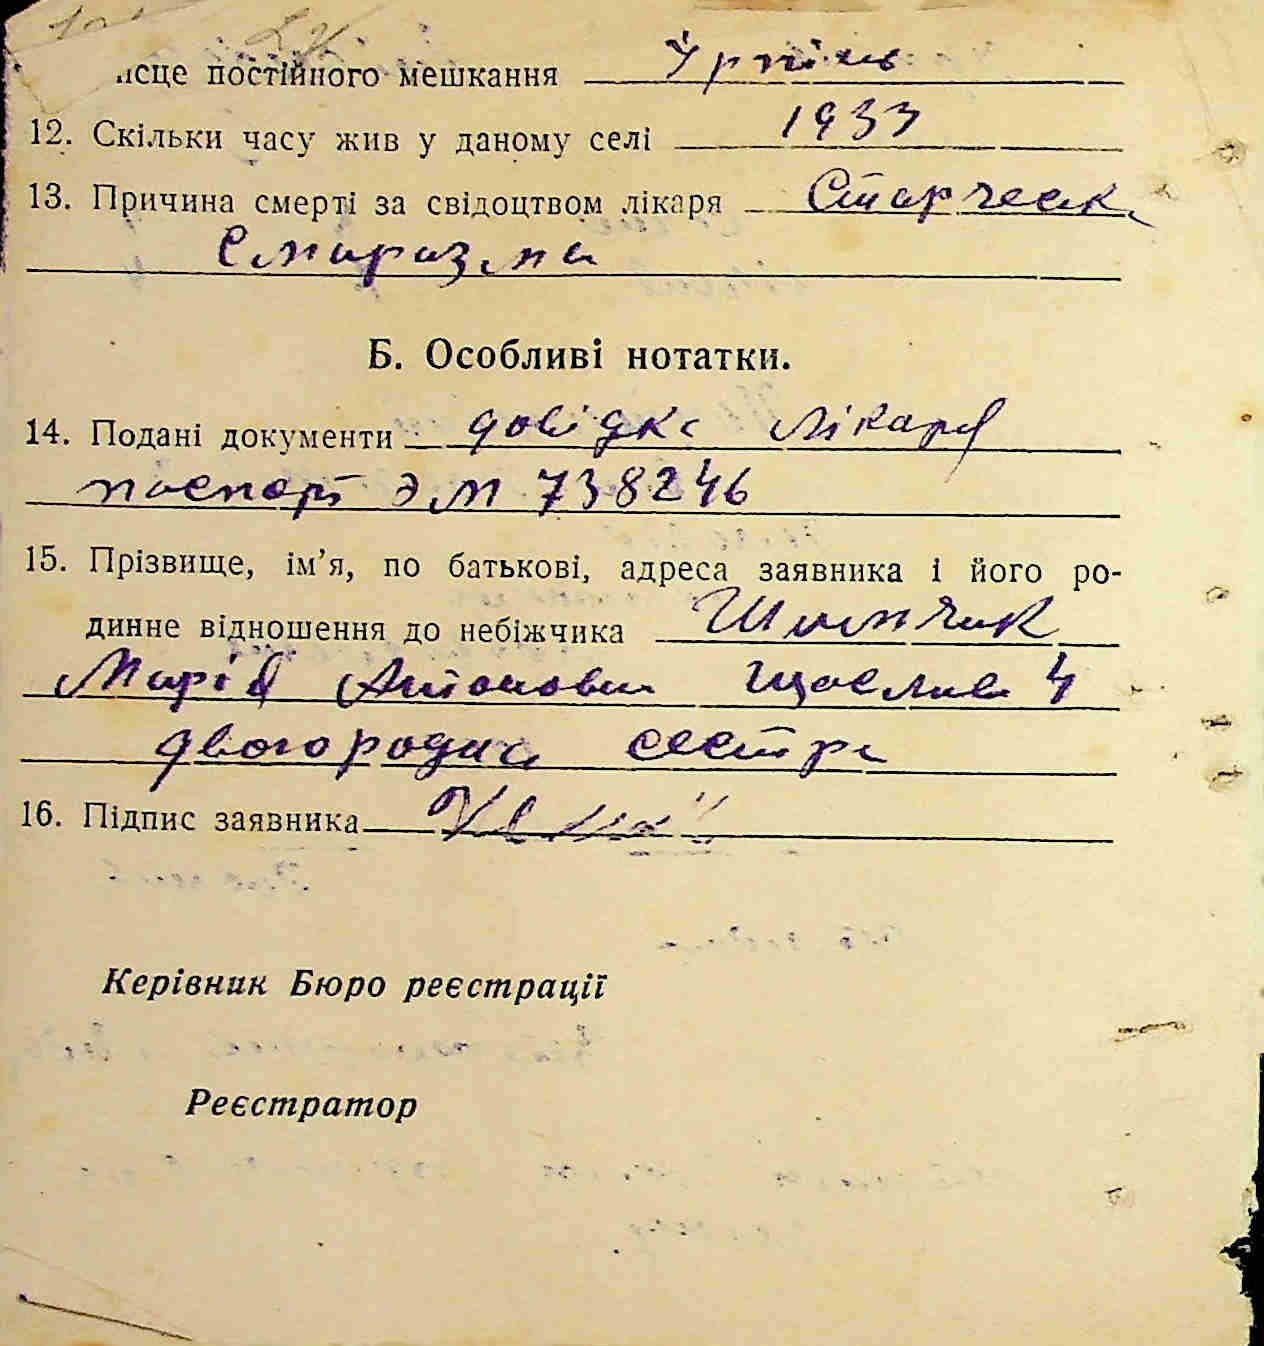 ісце постійного мешкання Ірпінь
12. Скільки часу жив у даному селі 1933
13. Причина смерті за свідоцтвом лікаря Старческ
Смаразма
Б. Особливі нотатки.
14. Подані документи довідка лікаря
паспорт ЭМ 738246
15. Прізвище, ім’я, по батькові, адреса заявника і його ро-
динне відношення до небіжчика
Марія Антоновна Щаслива 4
двогородна сестра
16. Підпис заявника
Керівник Бюро реєстрації
Реєстратор